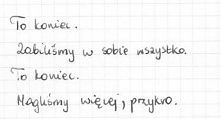 To koniec.
Zabiliśmy w sobie wszystko.
To koniec.
Mogliśmy więcej, przykro.